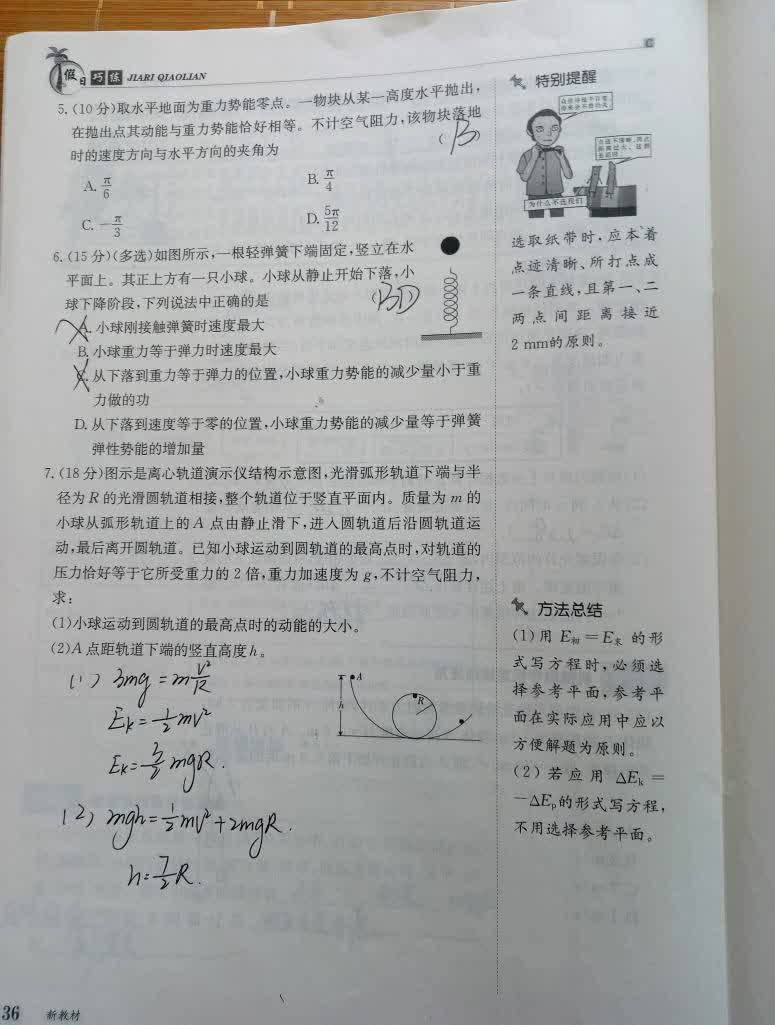 假日巧练 JIARI QIAOLIAN
C
5.(10分)取水平地面为重力势能零点。一物块从某一高度水平抛出,
在抛出点其动能与重力势能恰好相等。不计空气阻力,该物块落地
时的速度方向与水平方向的夹角为 ( B )
A. π/6 B. π/4
C. -π/3 D. 5π/12
6.(15分)(多选)如图所示,一根轻弹簧下端固定,竖立在水
平面上。其正上方有一只小球。小球从静止开始下落,小
球下降阶段,下列说法中正确的是 (BD)
A. 小球刚接触弹簧时速度最大
B. 小球重力等于弹力时速度最大
C. 从下落到重力等于弹力的位置,小球重力势能的减少量小于重
力做的功
D. 从下落到速度等于零的位置,小球重力势能的减少量等于弹簧
弹性势能的增加量
7.(18分)图示是离心轨道演示仪结构示意图,光滑弧形轨道下端与半
径为R的光滑圆轨道相接,整个轨道位于竖直平面内。质量为m的
小球从弧形轨道上的A点由静止滑下,进入圆轨道后沿圆轨道运
动,最后离开圆轨道。已知小球运动到圆轨道的最高点时,对轨道的
压力恰好等于它所受重力的2倍,重力加速度为g,不计空气阻力,
求:
(1)小球运动到圆轨道的最高点时的动能的大小。
(2)A点距轨道下端的竖直高度h。
A
h
R
(1) 3mg=m v²/R
Ek=1/2 mv²
Ek=3/2 mgR.
(2) mgh=1/2 mv²+2mgR.
h=7/2 R.
特别提醒
为什么不选我们
选取纸带时,应本着
点迹清晰、所打点成
一条直线,且第一、二
两点间距离接近
2 mm的原则。
方法总结
(1)用 E初=E末 的形
式写方程时,必须选
择参考平面,参考平
面在实际应用中应以
方便解题为原则。
(2)若应用 ΔEk=
-ΔEp的形式写方程,
不用选择参考平面。
36 新教材